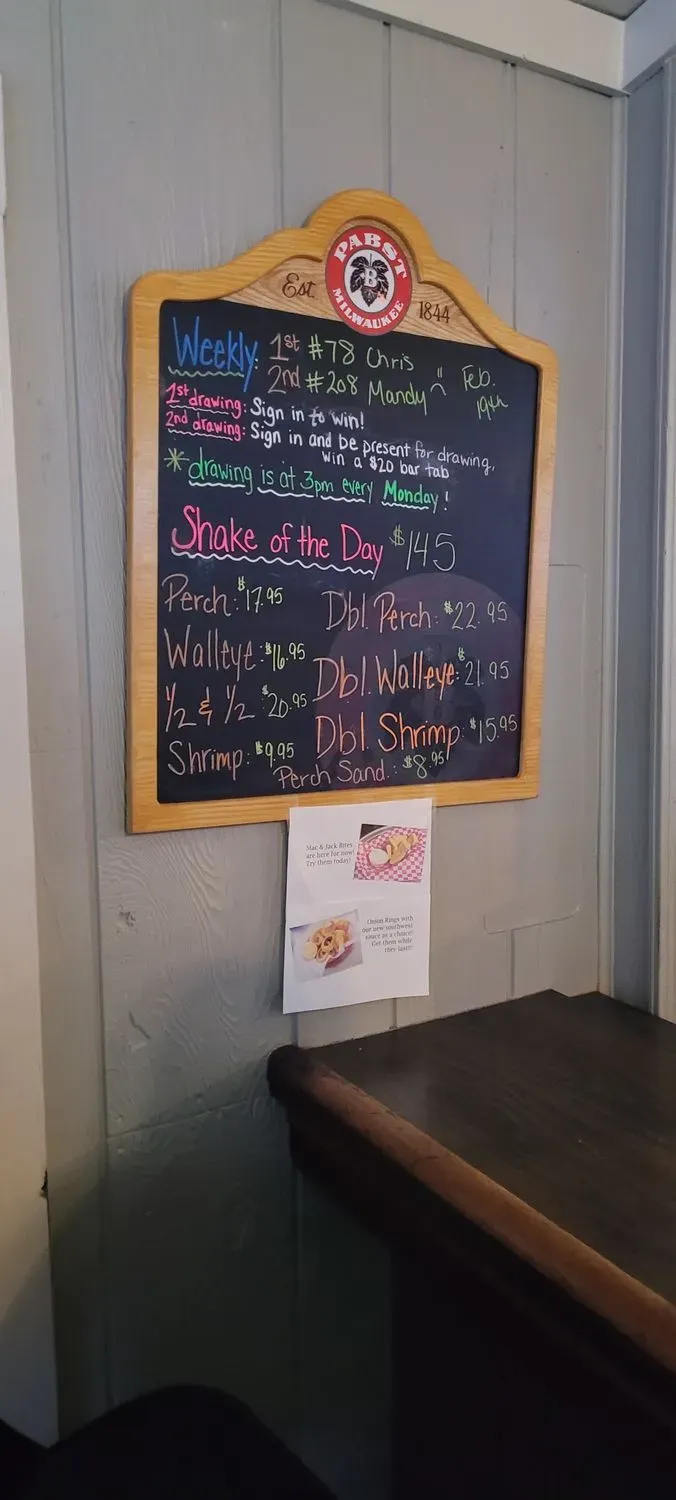 PABST
MILWAUKEE
B
Est. 1844
Weekly: 1st #78 Chris
2nd #208 Mandy :( Feb. 19th
1st drawing: Sign in to win!
2nd drawing: Sign in and be present for drawing,
win a $20 bar tab
*drawing is at 3pm every Monday!
Shake of the Day $145
Perch: $17.95 Dbl. Perch: $22.95
Walleye: $16.95 Dbl. Walleye: $21.95
1/2 & 1/2: $20.95 Dbl. Shrimp: $15.95
Shrimp: $9.95 Perch Sand.: $8.95
Mac & Jack Bites
are here for now!
Try them today!
Onion Rings with
our new southwest
sauce as a choice!
Get them while
they last!!